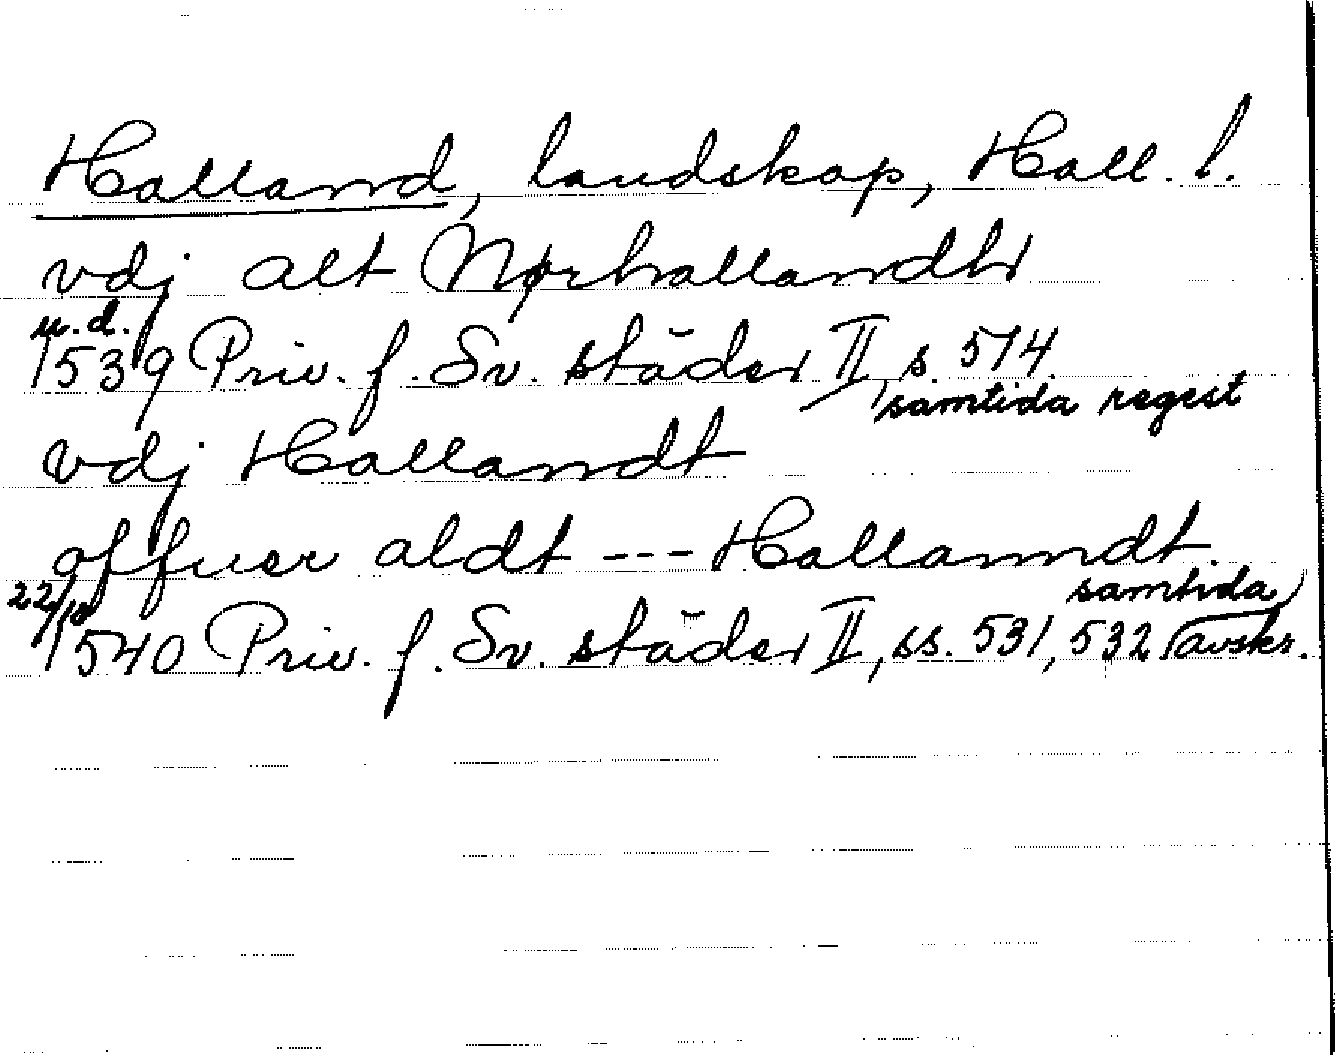 Halland, landskap, Hall. l.
vdj alt Nørhallandh
u.d.
1539 Priv. f. Sv. städer II, s. 514.
samtida regest
vdj Hallandt
offuer aldt --- Hallanndt.
22/10 samtida
1540 Priv. f. Sv. städer II, ss. 531, 532 avskr.